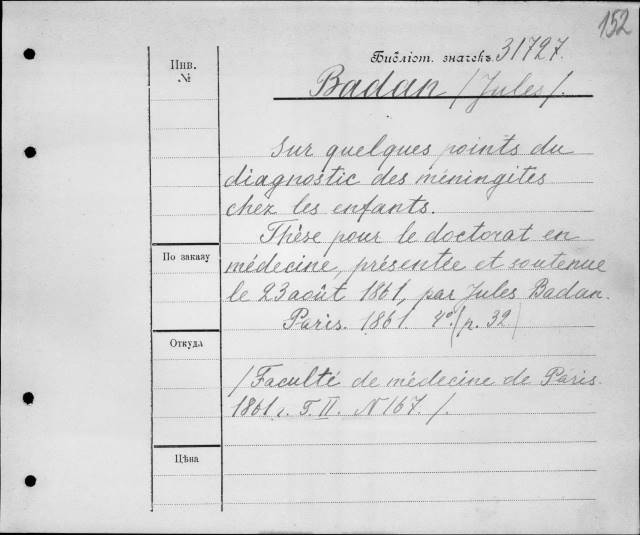 152
Библіот. значекъ 31727.
Инв.
№
Badan /Jules/.
Sur quelques points du
diagnostic des méningites
chez les enfants.
Thèse pour le doctorat en
По заказу
médecine, présentée et soutenue
le 23 août 1861, par Jules Badan.
Paris. 1861. 4º. (p. 32)
Откуда
/Faculté de médecine de Paris.
1861 г. T. II. N 167./.
Цѣна